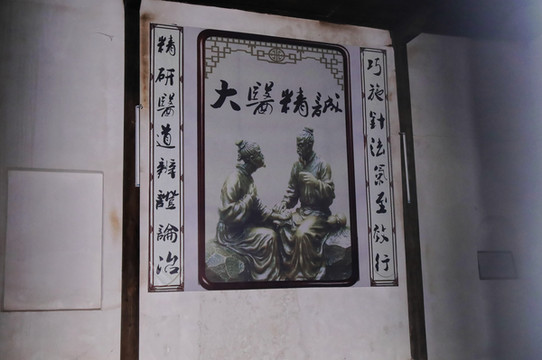 大醫精誠
精研醫道辨證論治
巧施針法氣至效行